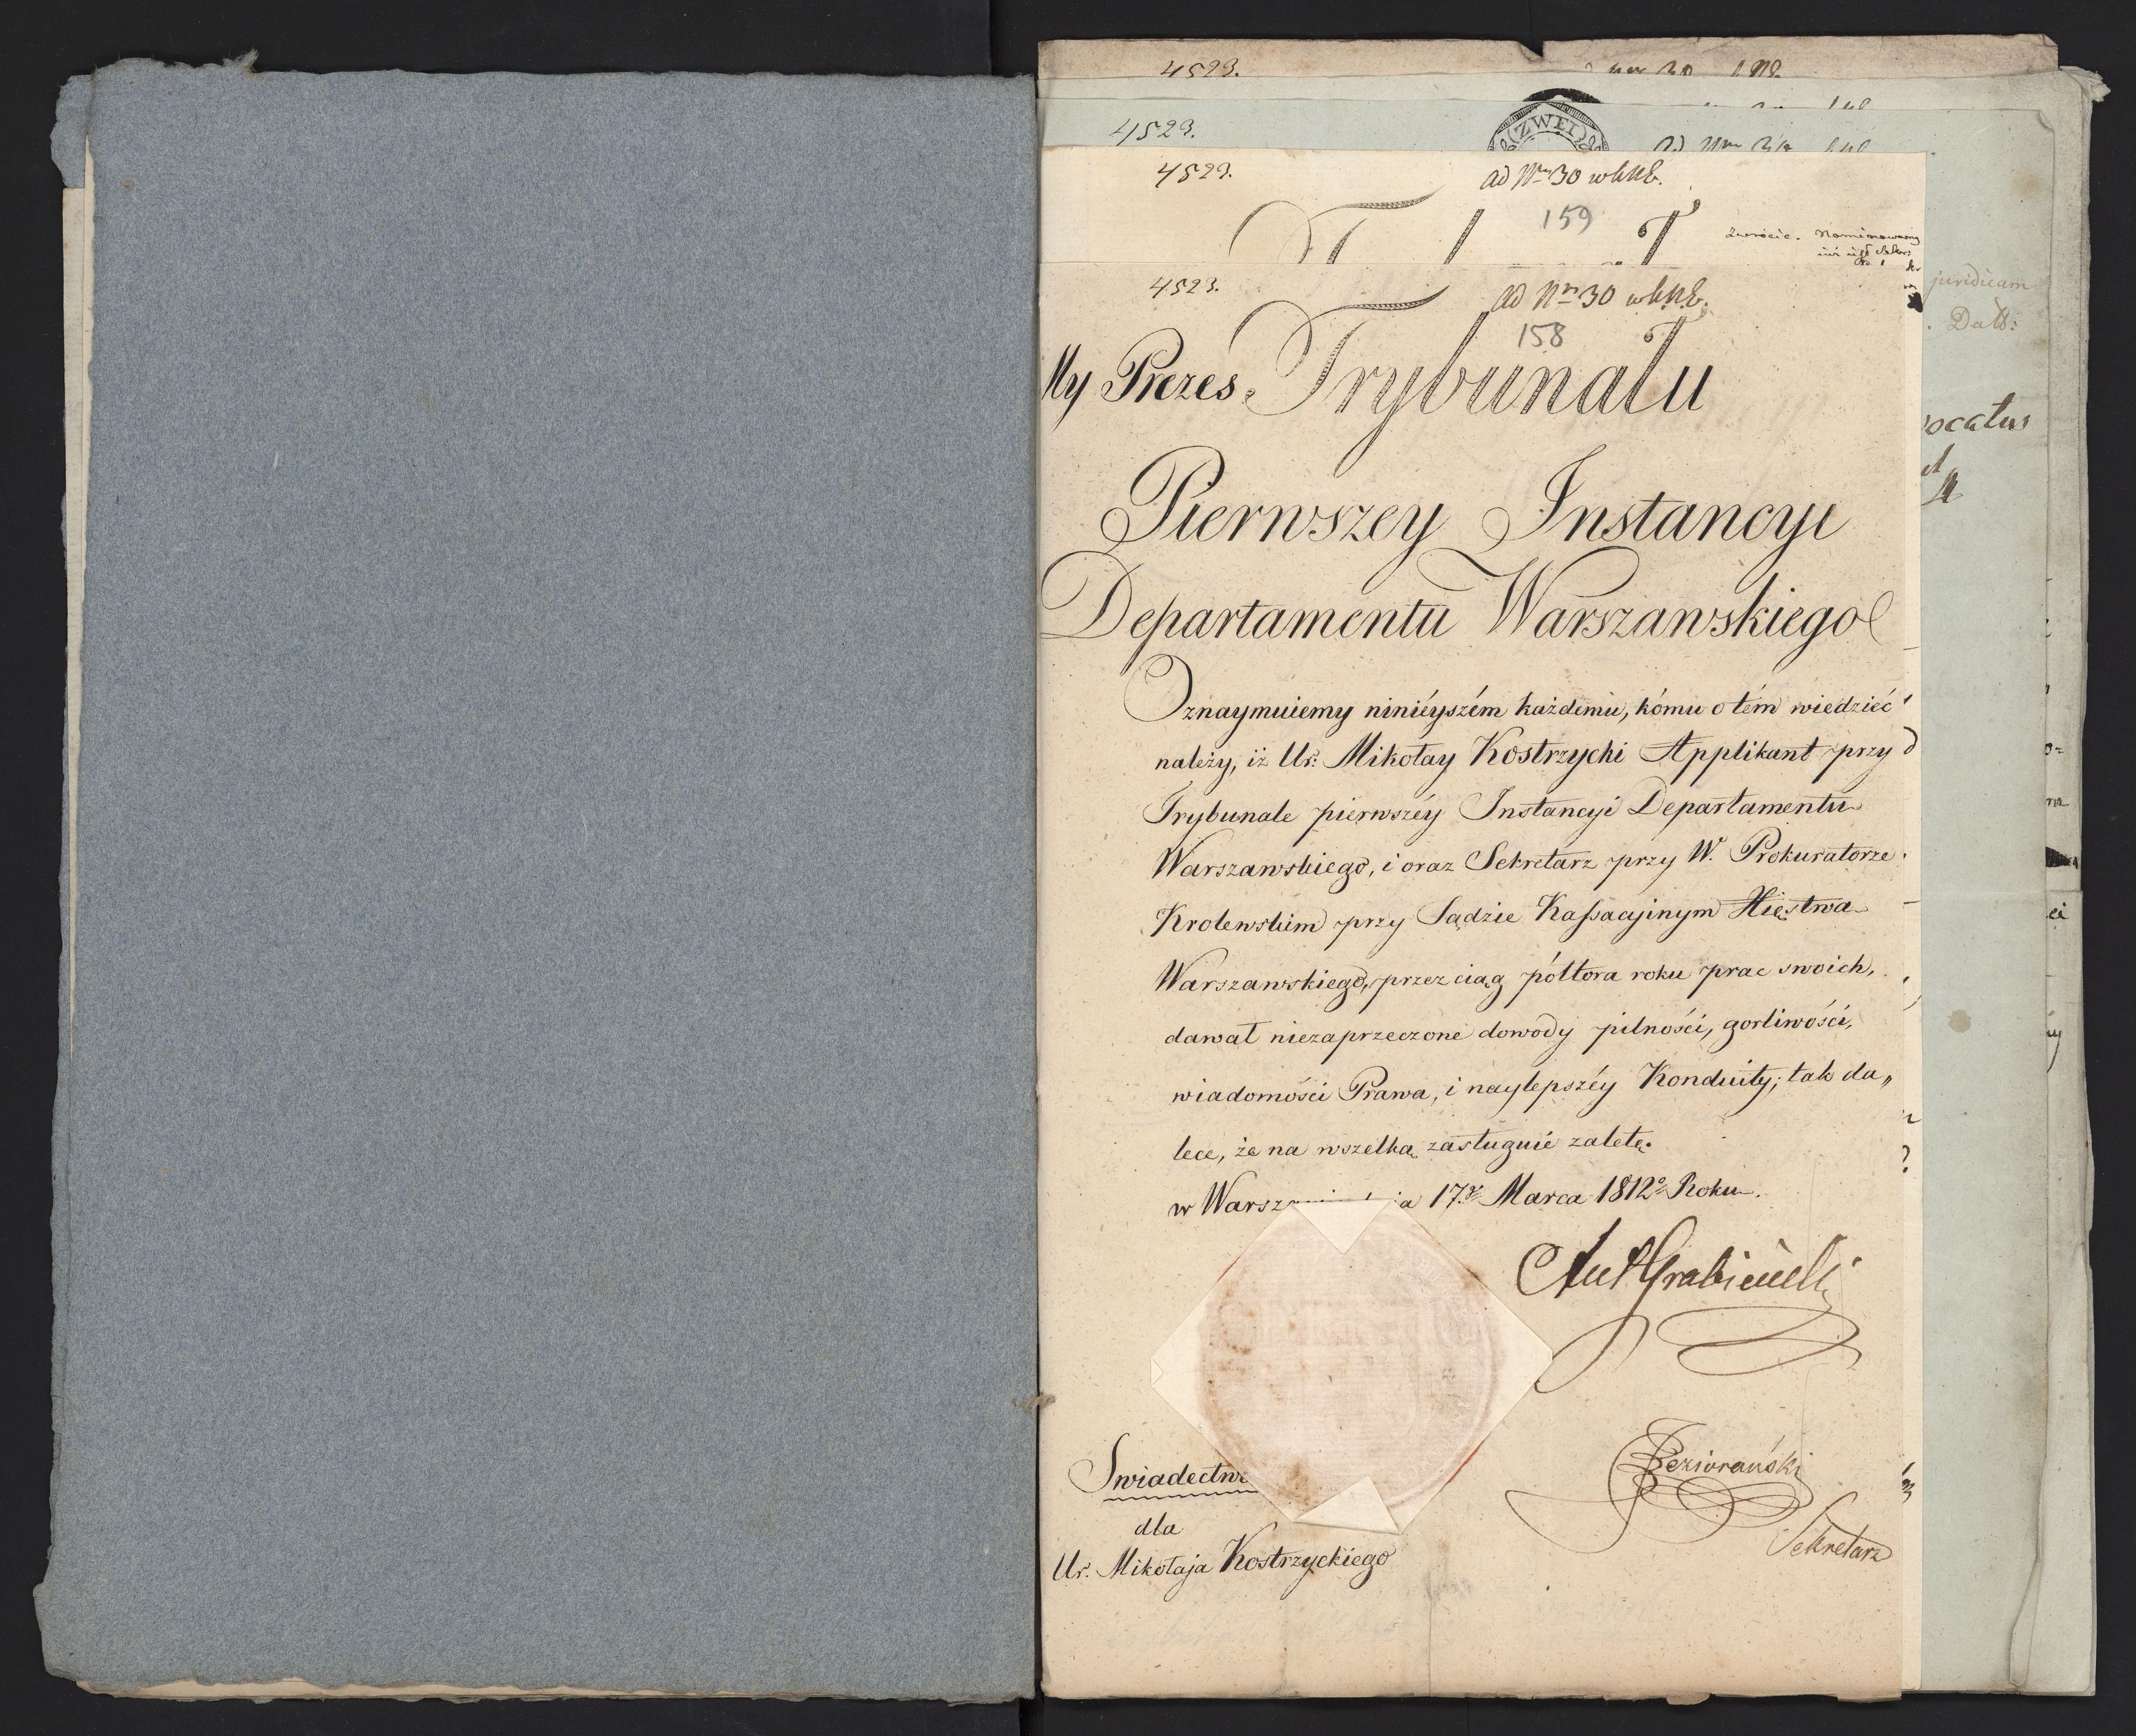 4523.
4523.
ZWEI
4523.
ad Nrm 30
159
zwrócić. Nominowany
juridicam
4523.
ad Nrm 30
158
My Prezes Trybunału
ocatus
Pierwszey Instancyi
Departamentu Warszawskiego
Oznaymuiemy ninieyszém każdemu, kómu o tém wiedzieć
należy, iż Ur. Mikołay Kostrzycki Applikant przy
Trybunale pierwszéy Instancyi Departamentu
Warszawskiego, i oraz Sekretarz przy W. Prokuratorze
Krolewskim przy Sądzie Kassacyinym Xięstwa
Warszawskiego, przez ciąg półtora roku prac swoich,
dawał niezaprzeczone dowody pilności, gorliwości,
wiadomości Prawa, i naylepszéy Konduity; tak da„
lece, że na wszelką zasługuie zaletę.
w Warsz ia 17. Marca 1812 Roku.
Ant Grabieński
Jeziorański
Sekretarz
Swiadectwo
dla
Ur. Mikołaja Kostrzyckiego